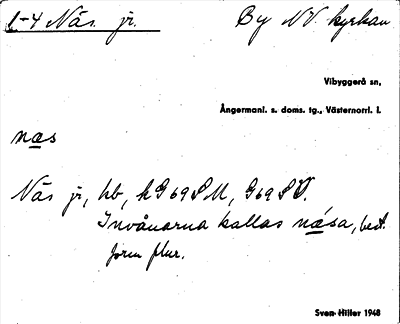 1-4 Näs. jr. By NV. kyrkan
Vibyggerå sn,
Ångermanl. s. doms. tg., Västernorrl. l.
næs
Näs jr, hb, k G69SM, G69SV.
Invånarna kallas næsa, best.
form plur.
Sven Hiller 1948